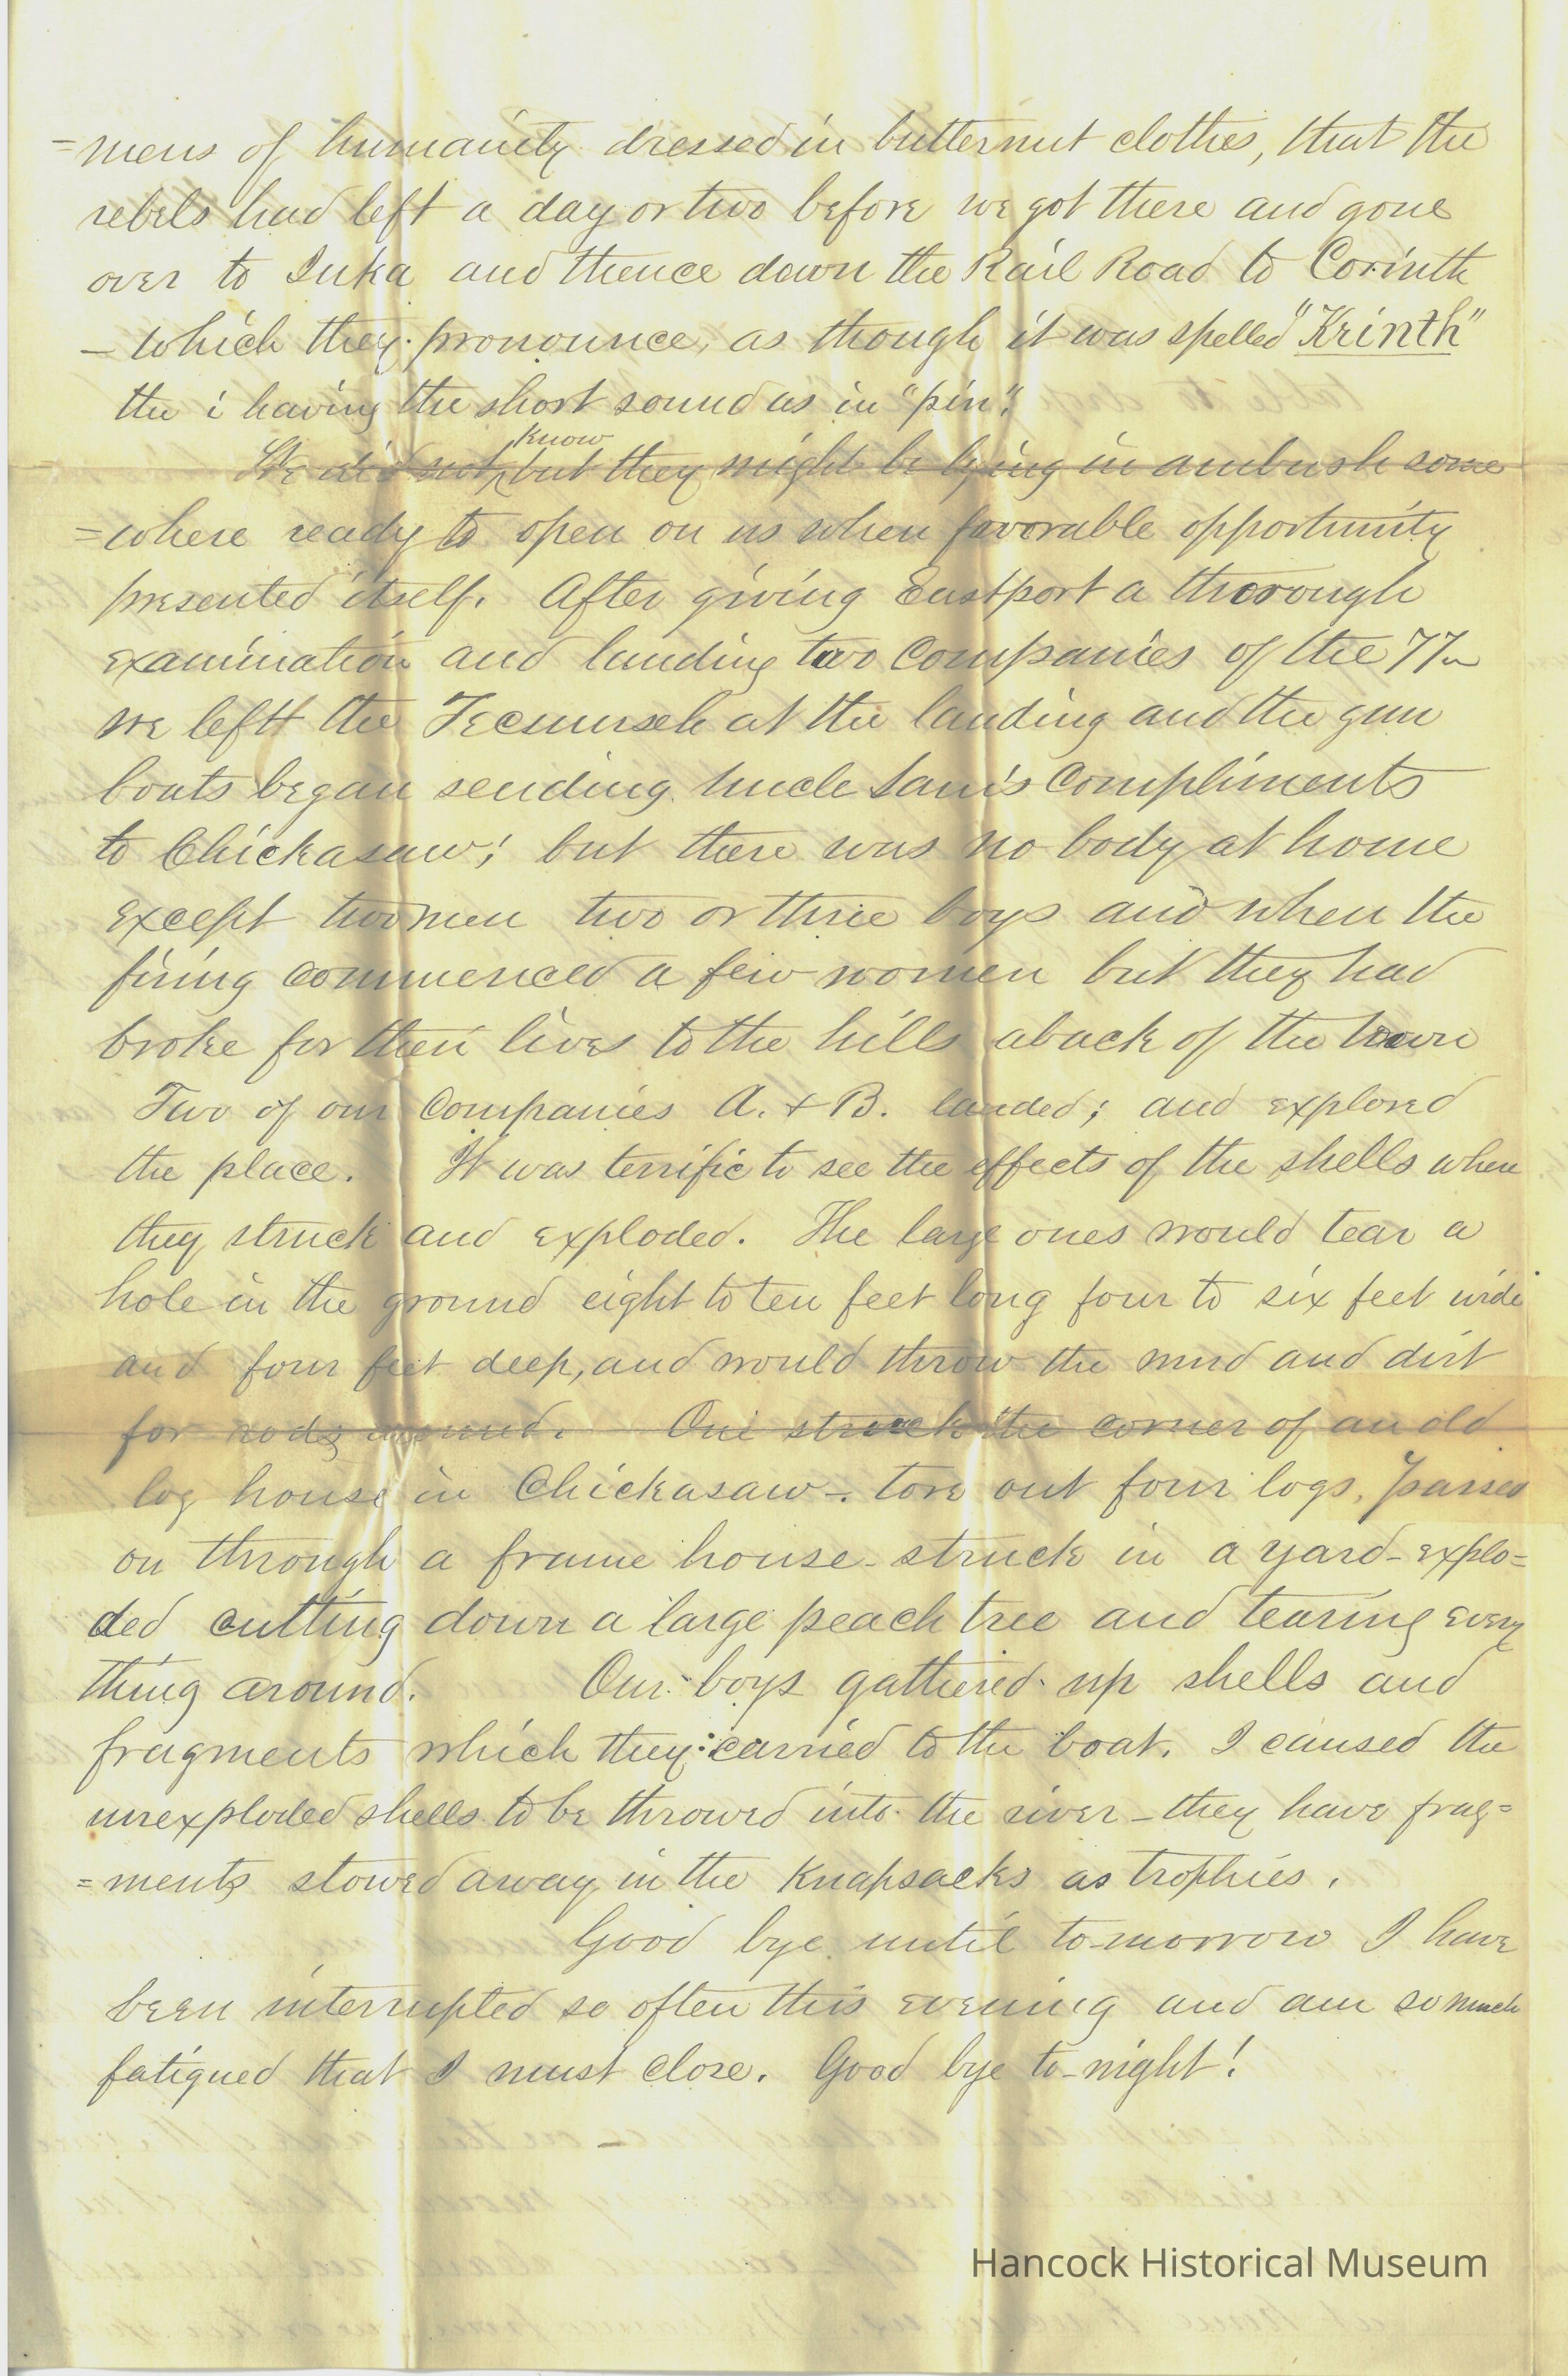 =mens of humanity dressed in butternut clothes, that the
rebels had left a day or two before we got there and gone
over to Iuka and thence down the Rail Road to Corinth
– which they pronounce, as though it was spelled "Krinth"
the i having the short sound as in "pin".
We did not know but they might be lying in ambush some
=where ready to open on us when favorable opportunity
presented itself. After giving Eastport a thorough
examination and landing two Companies of the 77th
we left the Tecumseh at the landing and the gun
boats began sending Uncle Sam's Compliments
to Chickasaw; but there was no body at home
except two men two or three boys and when the
firing commenced a few women but they had
broke for their lives to the hills aback of the town
Two of our Companies A. & B. landed; and explored
the place. It was terrific to see the effects of the shells when
they struck and exploded. The large ones would tear a
hole in the ground eight to ten feet long four to six feet wide
and four feet deep, and would throw the mud and dirt
for rods around. One struck the corner of an old
log house in Chickasaw – tore out four logs, passed
on through a frame house – struck in a yard – explo=
ded cutting down a large peach tree and tearing every
thing around. Our boys gathered up shells and
fragments which they carried to the boat. I caused the
unexploded shells to be throwed into the river – they have frag=
=ments stowed away in the Knapsacks as trophies.
Good bye until to-morrow I have
been interrupted so often this evening and am so much
fatigued that I must close. Good bye to-night!
Hancock Historical Museum